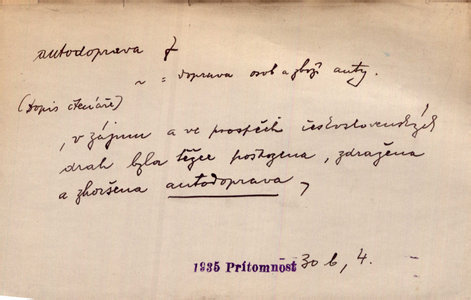 autodoprava f
~ = doprava osob a zboží auty.
(Dopis čtenáře)
, v zájmu a ve prospěch československých
drah byla těžce postižena, zdražena
a zhoršena autodoprava,
1935 Přítomnost 30 b, 4.